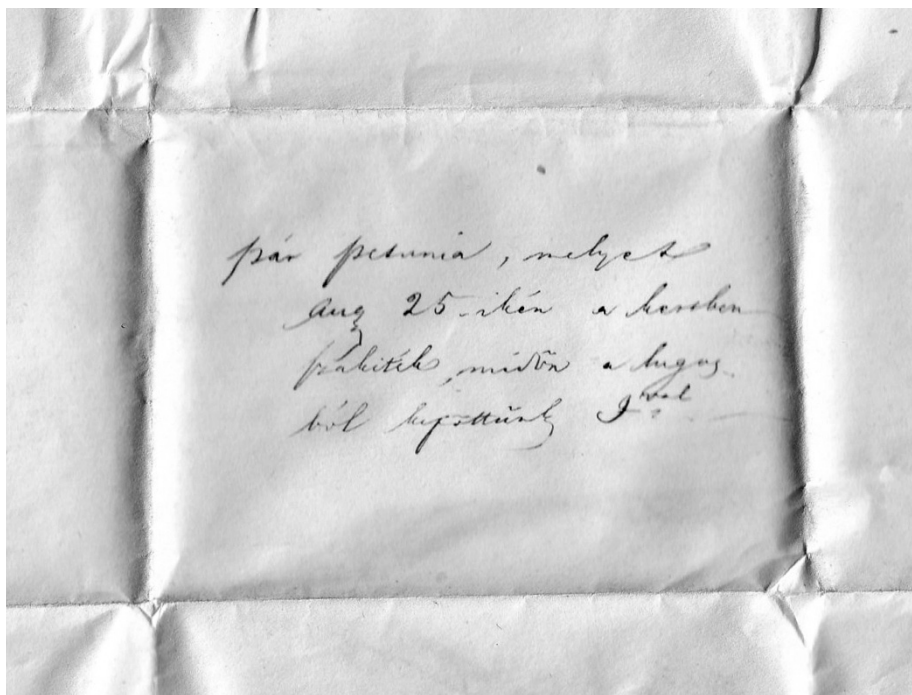 pár petunia, melyet
Aug 25-ikén a kertben
szakiték, midőn a lugas-
ból kijöttünk J val